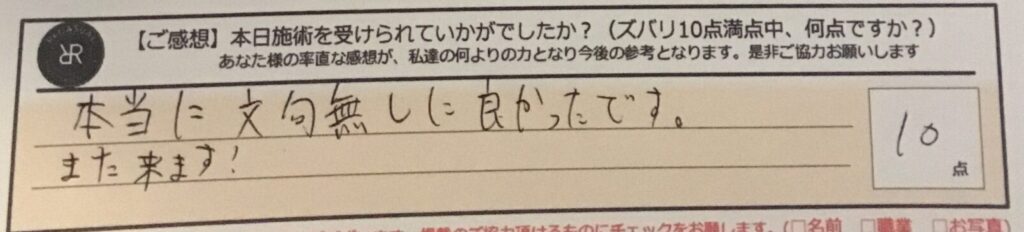 【ご感想】本日施術を受けられていかがでしたか？（ズバリ10点満点中、何点ですか？）
あなた様の率直な感想が、私達の何よりの力となり今後の参考となります。是非ご協力お願いします
本当に文句無しに良かったです。
また来ます！
10
点
掲載のご協力頂けるものにチェックをお願いします。(□名前　□職業　□お写真)